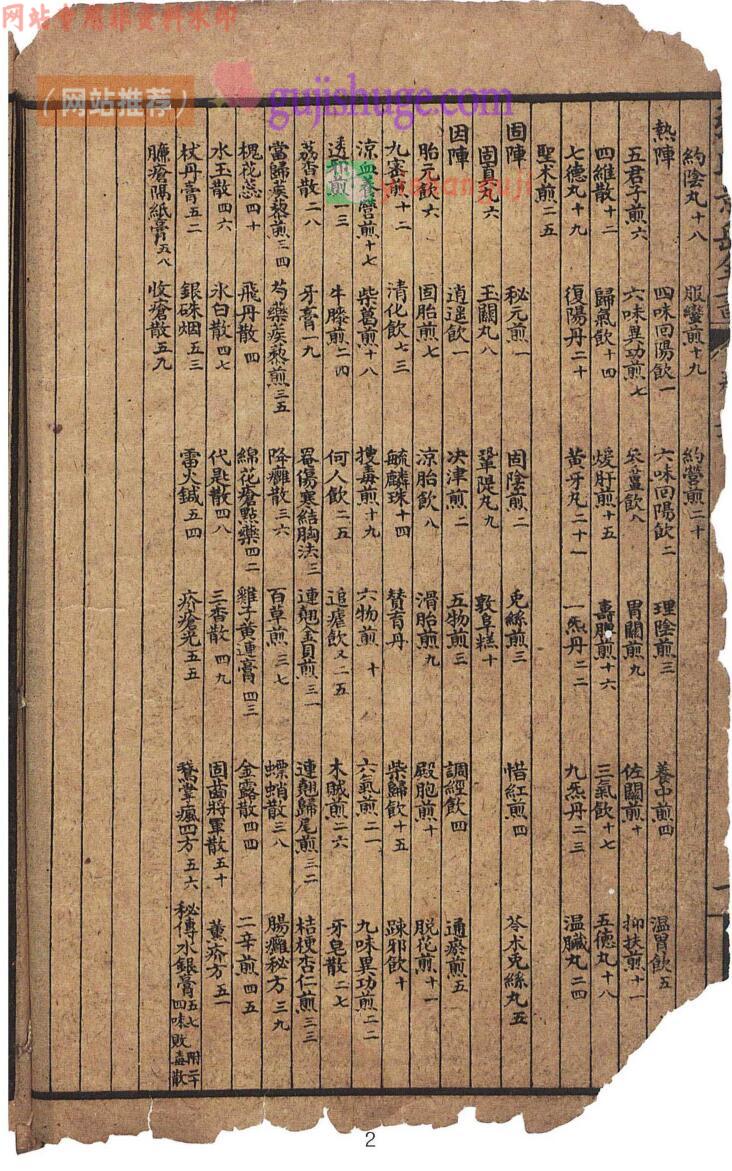 网站专用非资料水印
（网站推荐）
gujishuge.com
約陰丸十八 服蠻煎十九 約營煎二十
熱陣 四味回陽飲一 六味回陽飲二 理陰煎三 養中煎四 溫胃飲五
五君子煎六 六味異功煎七 八 胃關煎九 佐關煎十 抑扶煎十一
四維散十二 歸氣飲十四 煖肝煎十五 壽脾煎十六 三氣飲十七 五德丸十八
七德丸十九 復陽丹二十 黄牙丸二十一 一炁丹二二 九炁丹二三 温臟丸二四
聖术煎二五
固陣 秘元煎一 固陰煎二 兎絲煎三 惜紅煎四 苓朮兎絲丸五
固真丸六 玉關丸八 鞏隄丸九 敦阜糕十
因陣 逍遥飲一 决津煎二 五物煎三 調經飲四 通瘀煎五
胎元飲六 固胎煎七 凉胎飲八 滑胎煎九 殿胞煎十 脱花煎十一
九蜜煎十二 清化飲七三 毓麟珠十四 賛育丹 柴歸飲十五 疎邪飲十
凉血養營煎十七 柴葛煎十八 搜毒煎十九 六物煎十 六氣煎二一 九味異功煎二二
透 煎一三 牛膝煎二四 何人飲二五 追瘧飲又二五 木賊煎二六 牙皂散二七
荔香散二八 牙膏一九 罨傷寒結胸法三 連翹金貝煎三一 連翹歸尾煎三二 桔梗杏仁煎三三
當歸蒺藜煎三四 芍藥蒺藜煎三五 降癰散三六 百草煎三七 螵蛸散三八 腸癰秘方三九
槐花蕊四十 飛丹散四 綿花瘡點藥四二 雞子黄連膏四三 金露散四四 二辛煎四五
水玉散四六 氷白散四七 代匙散四八 三香散四九 固齒將軍散五十 薰疥方五一
杖丹膏五二 銀硃烟五三 雷火鍼五四 疥瘡光五五 鵝掌瘋四方五六 秘傳水銀膏五七 附二方 四味敗毒散
臁瘡隔紙膏五八 收瘡散五九
2